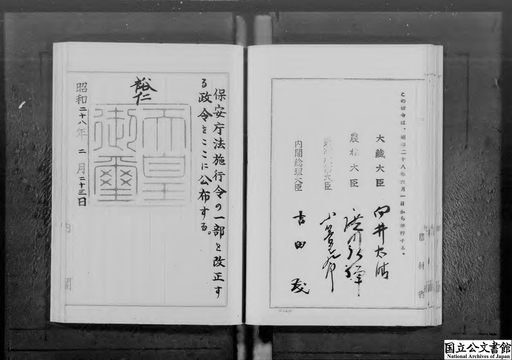 この政令は、昭和二十八年六月一日から施行する。
大蔵大臣 向井忠晴
農林大臣
内閣総理大臣 吉田茂
保安庁法施行令の一部を改正す
る政令をここに公布する。
裕仁
天皇御璽
昭和二十八年二月二十三日
国立公文書館
National Archives of Japan